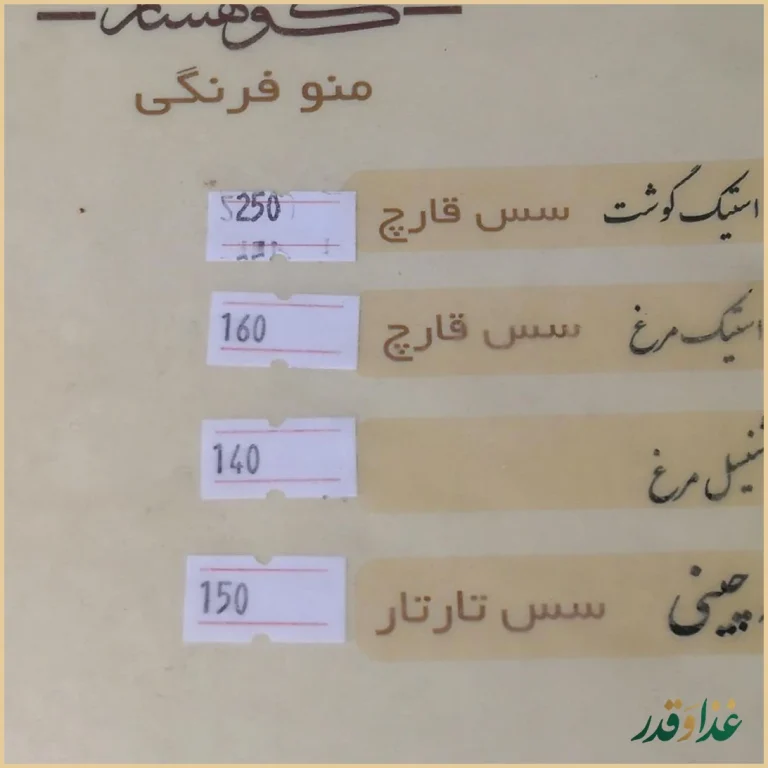 کوهسار
منو فرنگی
استیک گوشت سس قارچ 250
استیک مرغ سس قارچ 160
شنیسل مرغ 140
چینی سس تارتار 150
غذا و قدر